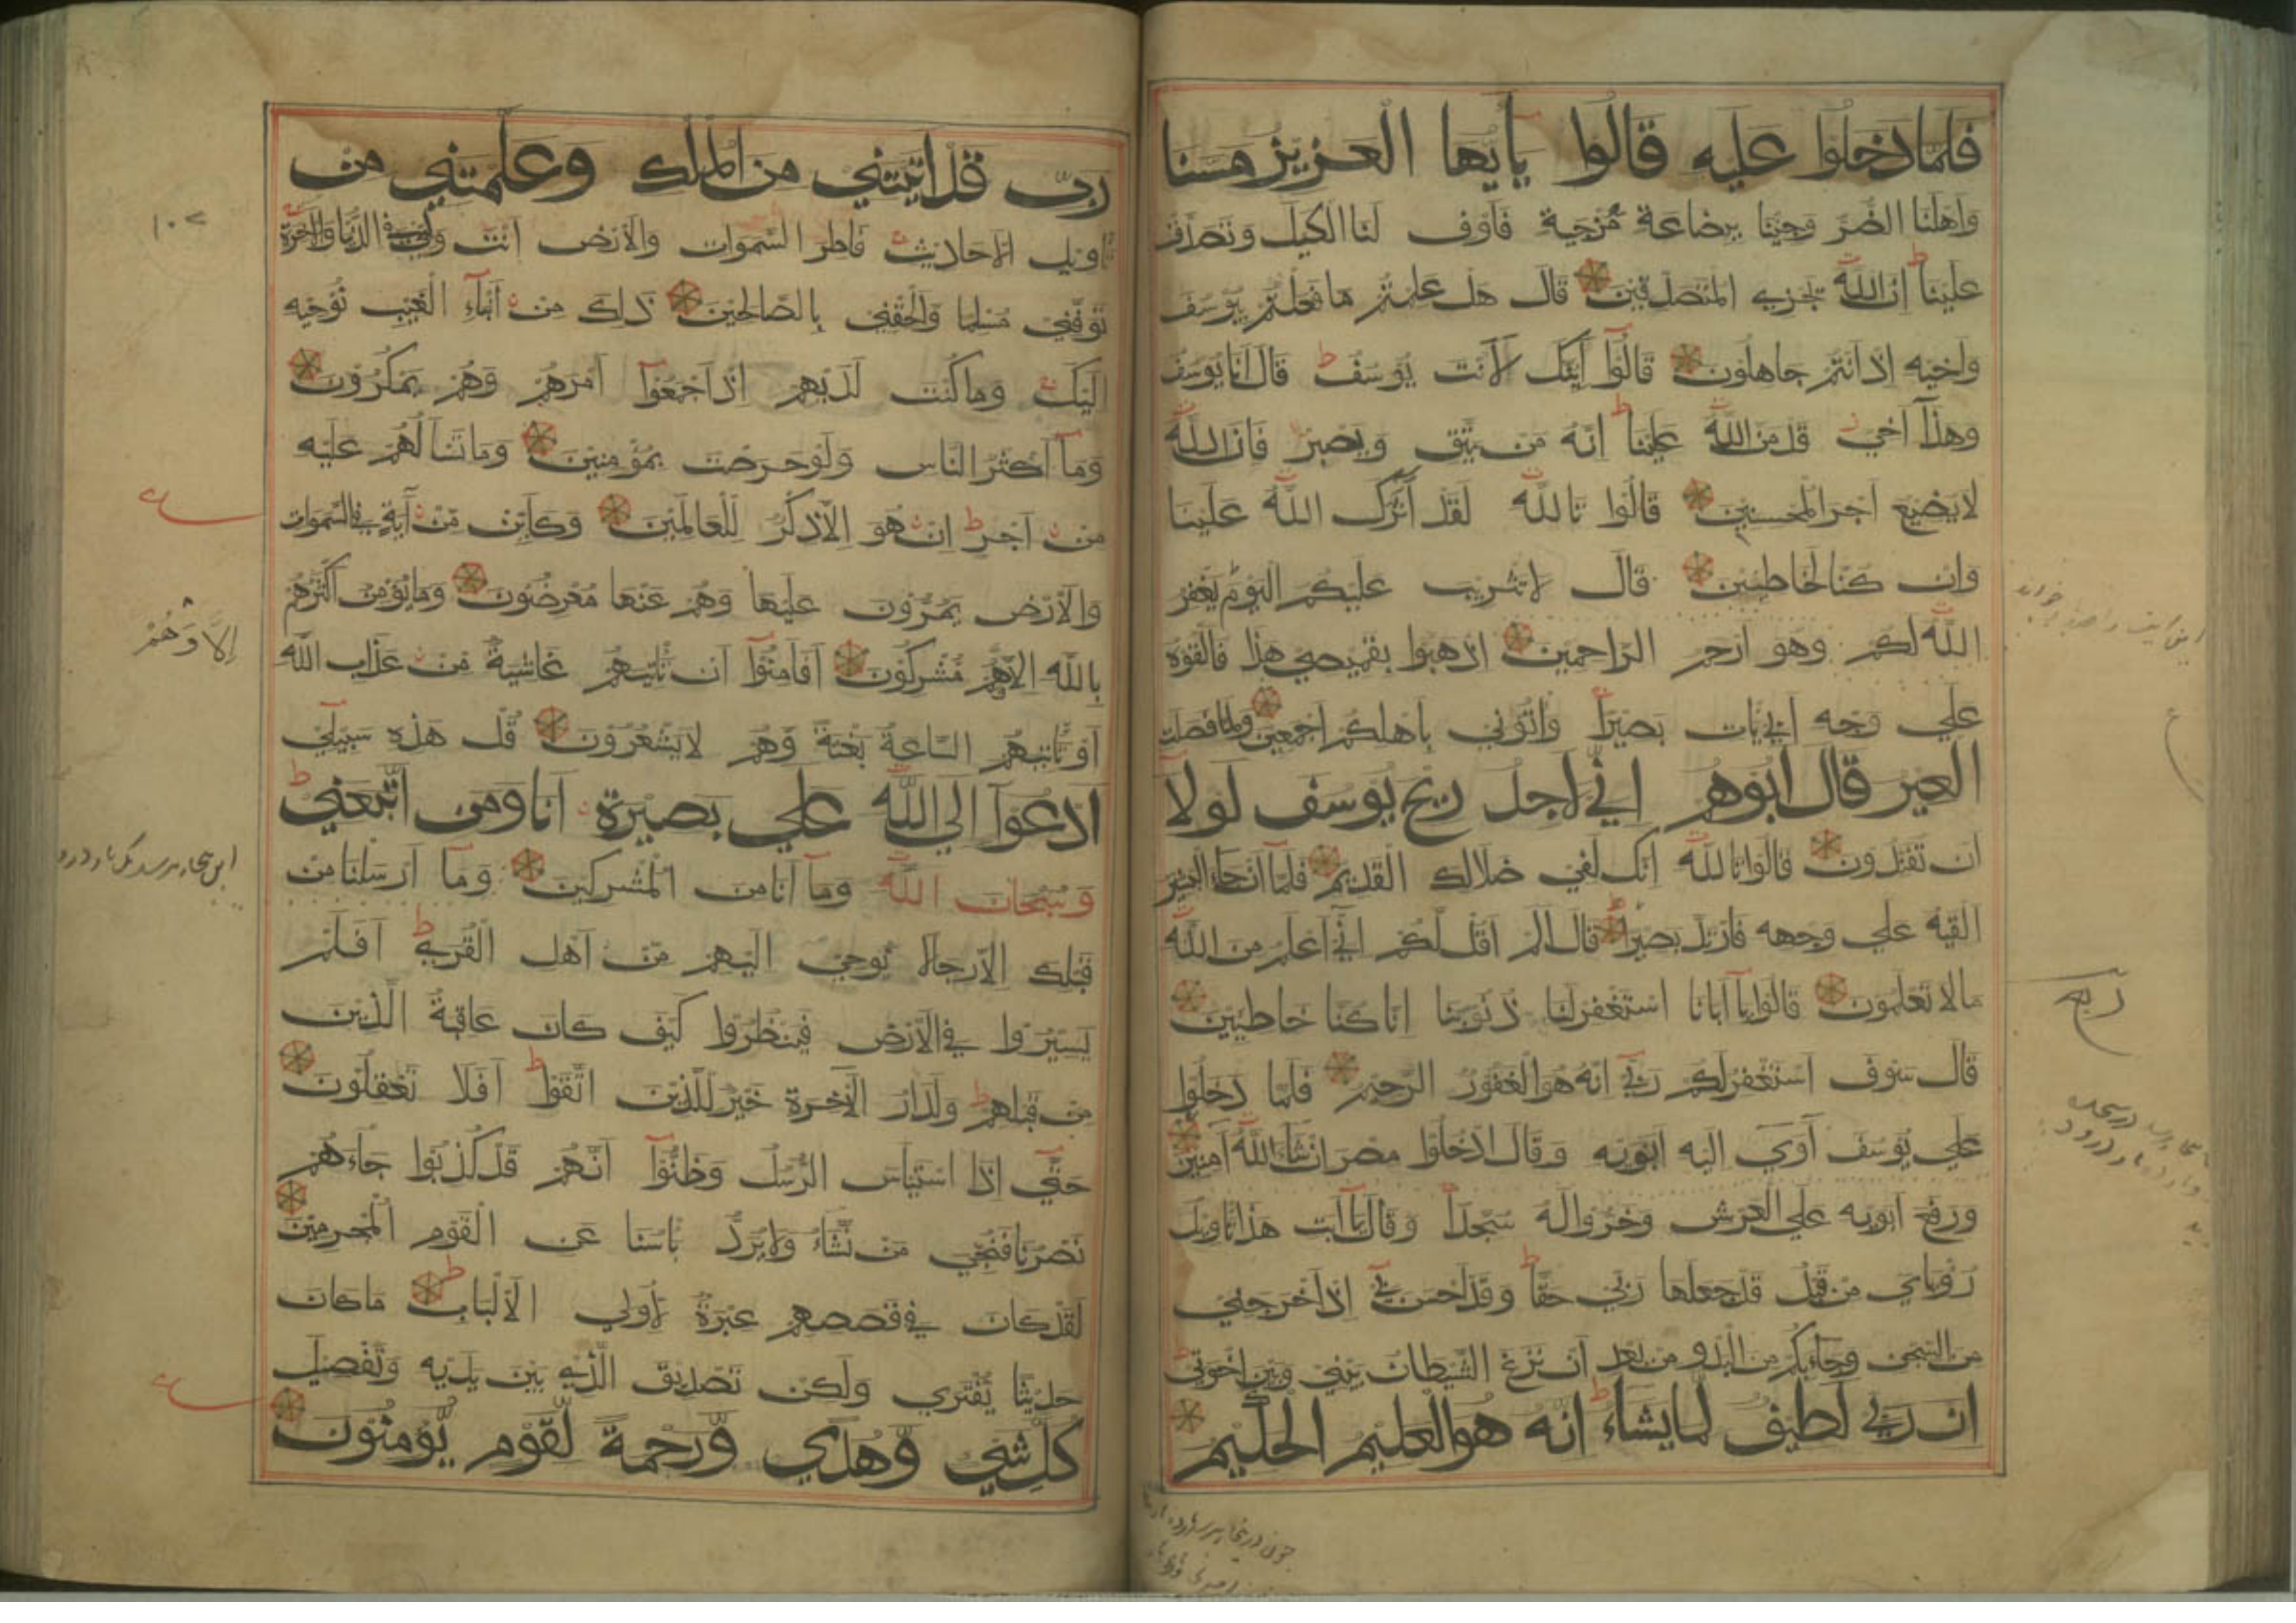 فلما دخلوا عليه قالوا يأيها العزيز مسنا
واهلنا الضر وجئنا ببضاعة مزجية فاوف لنا الكيل وتصدق
علينا ان الله يجزي المتصدقين قال هل علمتم ما فعلتم بيوسف
واخيه اذ انتم جاهلون قالوا ائنك لانت يوسف قال انا يوسف
وهذا اخي قد من الله علينا انه من يتق ويصبر فان الله
لا يضيع اجر المحسنين قالوا تالله لقد آثرك الله علينا
وان كنا لخاطئين قال لا تثريب عليكم اليوم يغفر
الله لكم وهو ارحم الراحمين اذهبوا بقميصي هذا فالقوه
علي وجه ابي يات بصيرا واتوني باهلكم اجمعين ولما فصلت
العير قال ابوهم اني لاجد ريح يوسف لولا
ان تفندون قالوا تالله انك لفي ضلالك القديم فلما ان جاء البشير
القيه علي وجهه فارتد بصيرا قال الم اقل لكم اني اعلم من الله
مالا تعلمون قالوا يا آبانا استغفر لنا ذنوبنا انا كنا خاطئين
قال سوف استغفر لكم ربي انه هو الغفور الرحيم فلما دخلوا
علي يوسف آوي اليه ابويه وقال ادخلوا مصر ان شاء الله آمنين
ورفع ابويه علي العرش وخروا له سجدا وقال يا ابت هذا تاويل
رؤياي من قبل قد جعلها ربي حقا وقد احسن بي اذ اخرجني
من السجن وجاء بكم من البدو من بعد ان نزغ الشيطان بيني وبين اخوتي
ان ربي لطيف لما يشاء انه هو العليم الحكيم
ربع
رب قد اتيتني من الملك وعلمتني من
تاويل الاحاديث فاطر السموات والارض انت وليي في الدنيا والاخرة
توفني مسلما والحقني بالصالحين ذلك من انباء الغيب نوحيه
اليك وما كنت لديهم اذ اجمعوا امرهم وهم يمكرون
وما اكثر الناس ولو حرصت بمؤمنين وما تسالهم عليه
من اجر ان هو الا ذكر للعالمين وكاين من آية في السموات
والارض يمرون عليها وهم عنها معرضون وما يؤمن اكثرهم
بالله الا وهم مشركون افامنوا ان تاتيهم غاشية من عذاب الله
او تاتيهم الساعة بغتة وهم لا يشعرون قل هذه سبيلي
ادعوا الي الله علي بصيرة انا ومن اتبعني
وسبحان الله وما انا من المشركين وما ارسلنا من
قبلك الا رجالا نوحي اليهم من اهل القري افلم
يسيروا في الارض فينظروا كيف كان عاقبة الذين
من قبلهم ولدار الاخرة خير للذين اتقوا افلا تعقلون
حتي اذا استياس الرسل وظنوا انهم قد كذبوا جاءهم
نصرنا فنجي من نشاء ولا يرد باسنا عن القوم المجرمين
لقد كان في قصصهم عبرة لاولي الالباب ما كان
حديثا يفتري ولكن تصديق الذي بين يديه وتفصيل
كل شئ وهدي ورحمة لقوم يؤمنون
الا وهم